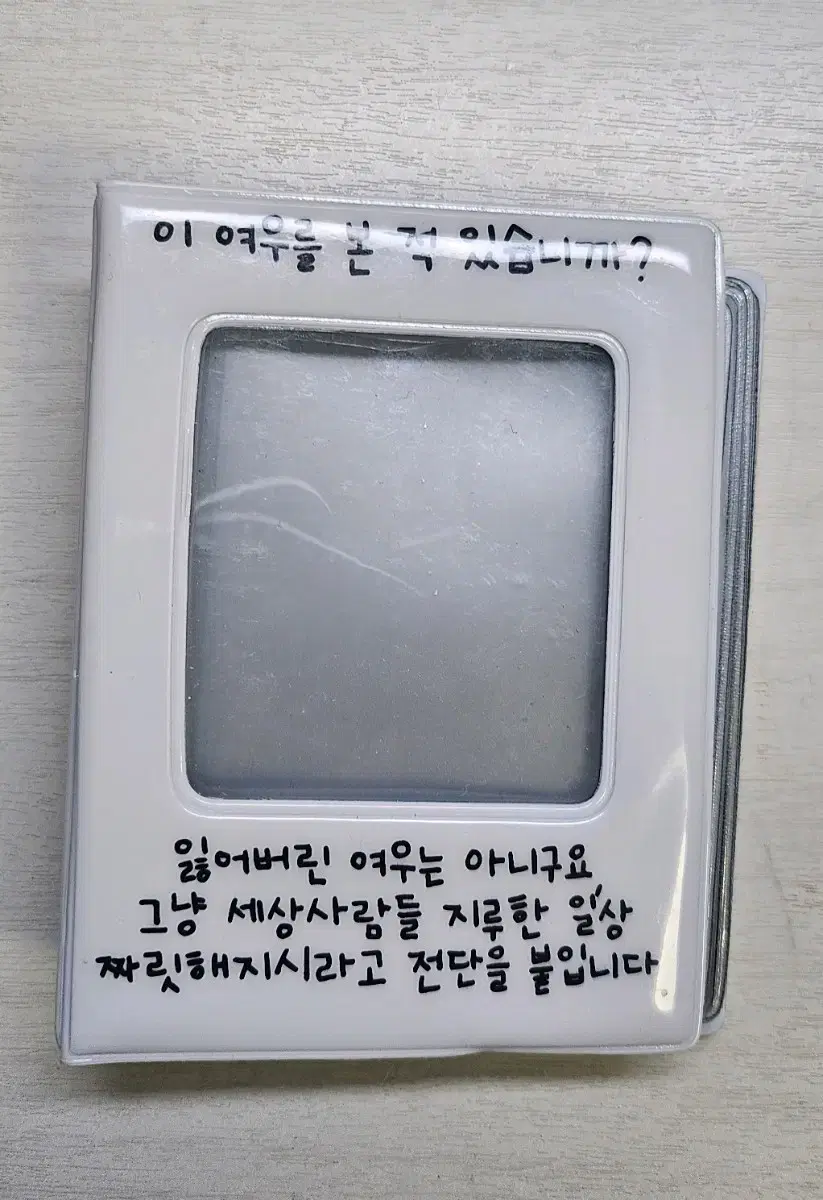 이 여우를 본 적 있습니까?
잃어버린 여우는 아니구요
그냥 세상사람들 지루한 일상
짜릿해지시라고 전단을 붙입니다